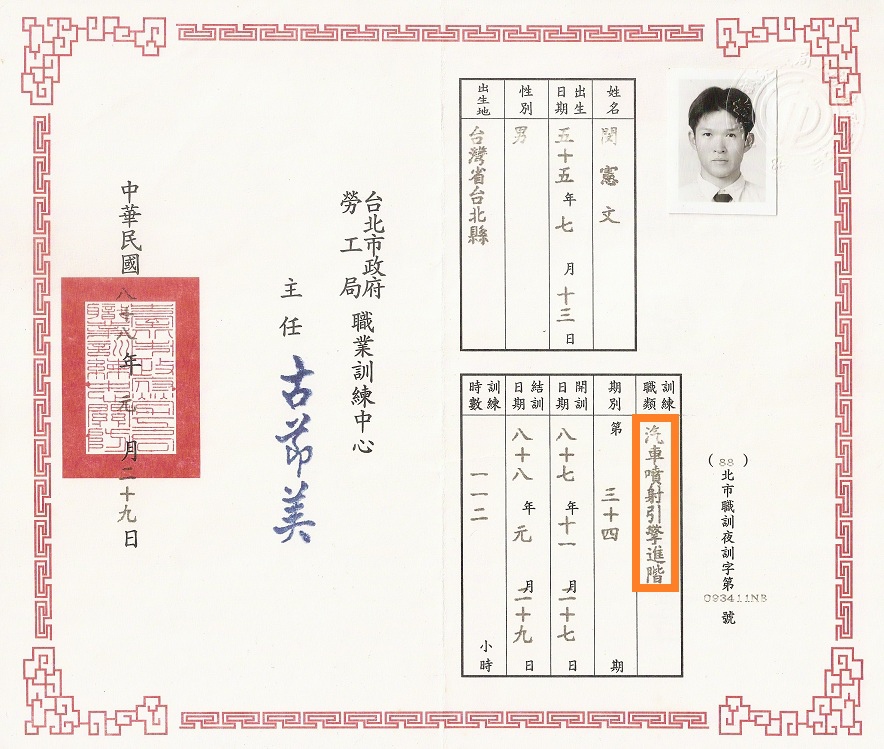 姓名 閔憲文
出生日期 五十五年七月十三日
性別 男
出生地 台灣省台北縣
訓練職類 汽車噴射引擎進階
期別 第三十四期
開訓日期 八十七年十一月二十七日
結訓日期 八十八年元月二十九日
訓練時數 一一二小時
(88)北市職訓夜訓字第093411NB號
台北市政府勞工局職業訓練中心
主任 古節美
中華民國八十八年元月二十九日